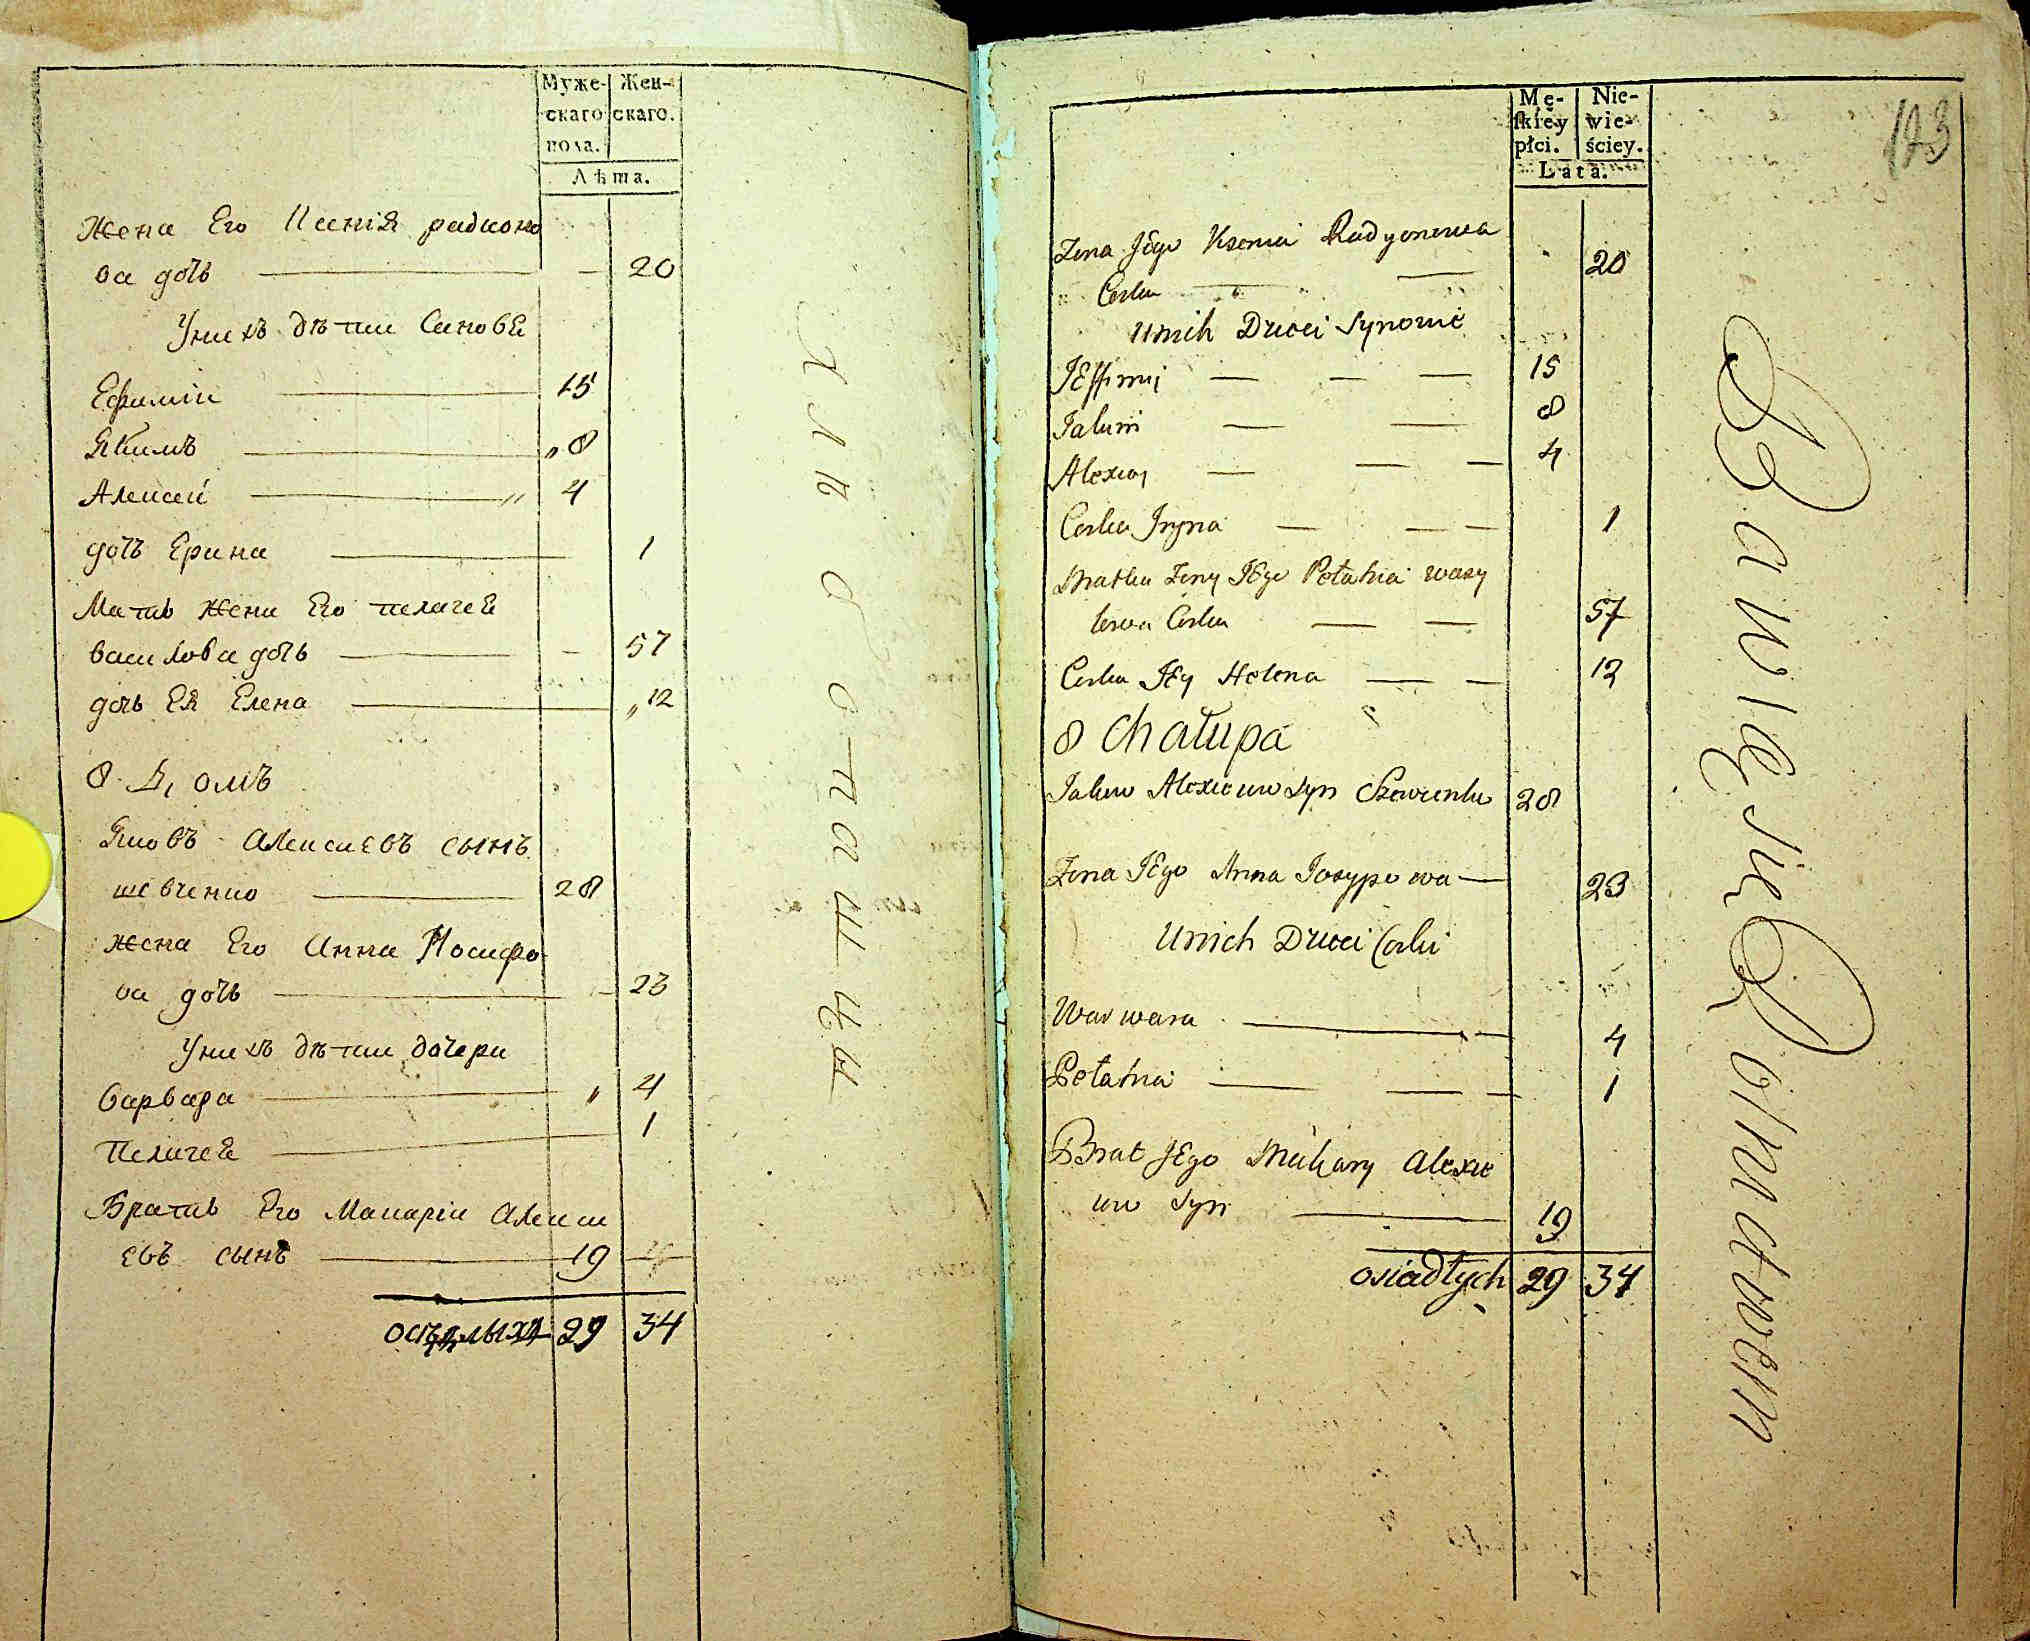 Муже- Жен-
скаго скаго.
пола.
Лѣта.
Жена Его Ксенія радионо
ва дочь — 20
Унихъ дѣти Синове
Ефимiи 15
Якимъ 8
Алексей 4
дочь Ерина 1
Мать жени Его пелагея
василова дочь — 57
дочь Ея Елена 12
8. Домъ
Яковъ Алексиевъ сынъ
шевченко 28
жена Его Анна Иосифо
ва дочь — 23
Унихъ дѣти дочери
варвара 4
Пелагея 1
Братъ Его Макарiи Алекси
евъ сынъ 19
осѣдлыхъ 29 34
Хлѣбопашцы
Mę- Nie-
ſkiéy wie-
płci. ściey.
Lata.
123
Zona Jego Ksenia Radyonowa
Corka — 20
Unich Dzieci Synowie
JEffimi 15
Jakim 8
Alexiey 4
Corka Iryna 1
Matka Zony JEgo Pełahia wasy
lowa Corka 57
Corka JEy Helena 12
8 Chałupa
Jakow Alexieiuw Syn Szewczenko 28
Zona JEgo Anna Josypowa — 23
Unich Dzieci Corki
Warwara 4
Pełahia 1
Brat JEgo Makary Alexie
iuw Syn 19
osiadłych 29 34
Bawię się Rolnictwem